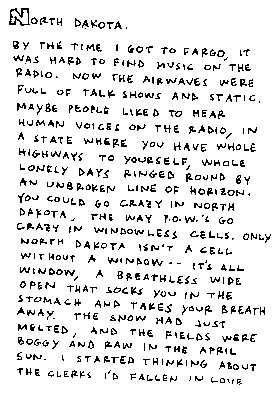 NORTH DAKOTA.
BY THE TIME I GOT TO FARGO, IT
WAS HARD TO FIND MUSIC ON THE
RADIO. NOW THE AIRWAVES WERE
FULL OF TALK SHOWS AND STATIC.
MAYBE PEOPLE LIKED TO HEAR
HUMAN VOICES ON THE RADIO, IN
A STATE WHERE YOU HAVE WHOLE
HIGHWAYS TO YOURSELF, WHOLE
LONELY DAYS RINGED ROUND BY
AN UNBROKEN LINE OF HORIZON.
YOU COULD GO CRAZY IN NORTH
DAKOTA, THE WAY P.O.W.'S GO
CRAZY IN WINDOWLESS CELLS. ONLY
NORTH DAKOTA ISN'T A CELL
WITHOUT A WINDOW -- IT'S ALL
WINDOW, A BREATHLESS WIDE
OPEN THAT SOCKS YOU IN THE
STOMACH AND TAKES YOUR BREATH
AWAY. THE SNOW HAD JUST
MELTED, AND THE FIELDS WERE
BOGGY AND RAW IN THE APRIL
SUN. I STARTED THINKING ABOUT
THE CLERKS I'D FALLEN IN LOVE